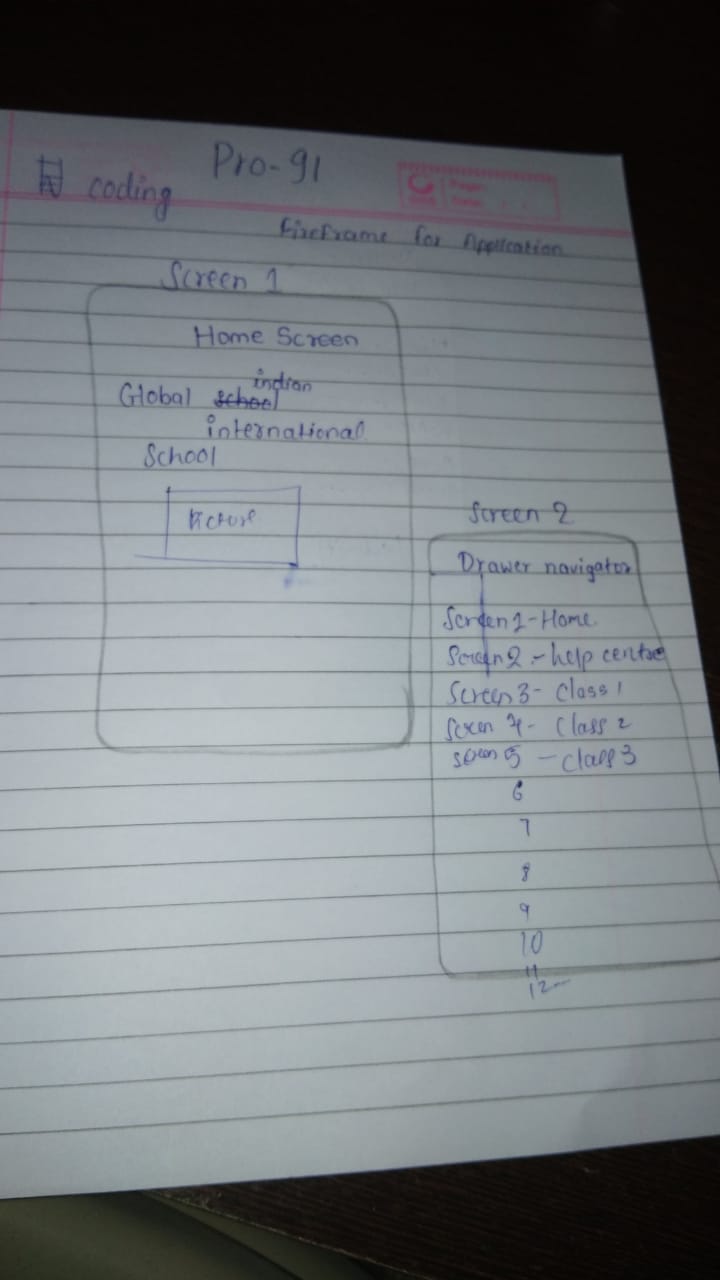 Pro-91
coding
fireframe for Application
Screen 1
Home Screen
indian
Global school
international
School
Picture
Screen 2
Drawer navigator
Screen 1-Home.
Screen 2 - help centre
Screen 3- Class 1
Scren 4- Class 2
screen 5 - class 3
6
7
8
9
10
11
12